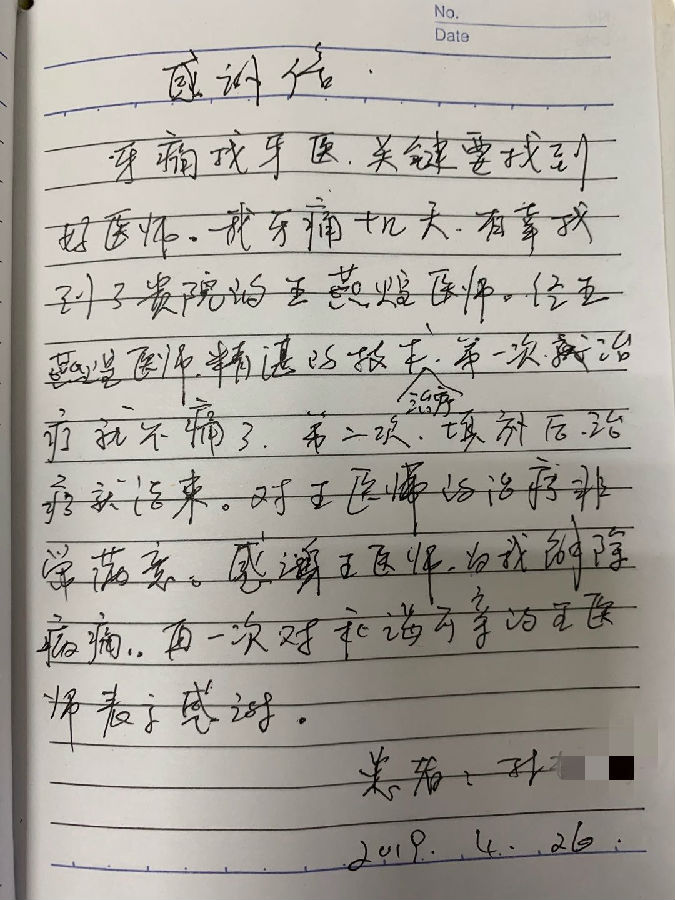 No.
Date
感谢信.
牙痛找牙医.关键要找到
好医师。我牙痛十几天.有幸找
到了贵院的王燕煌医师。经王
燕煌医师.精湛的技术.第一次就治
疗就不痛了.第二次.治疗填充后.治
疗就结束。对王医师的治疗非
常满意。感谢王医师.为我解除
病痛..再一次对和谐可亲的王医
师表示感谢。
患者:孙
2019.4.26.